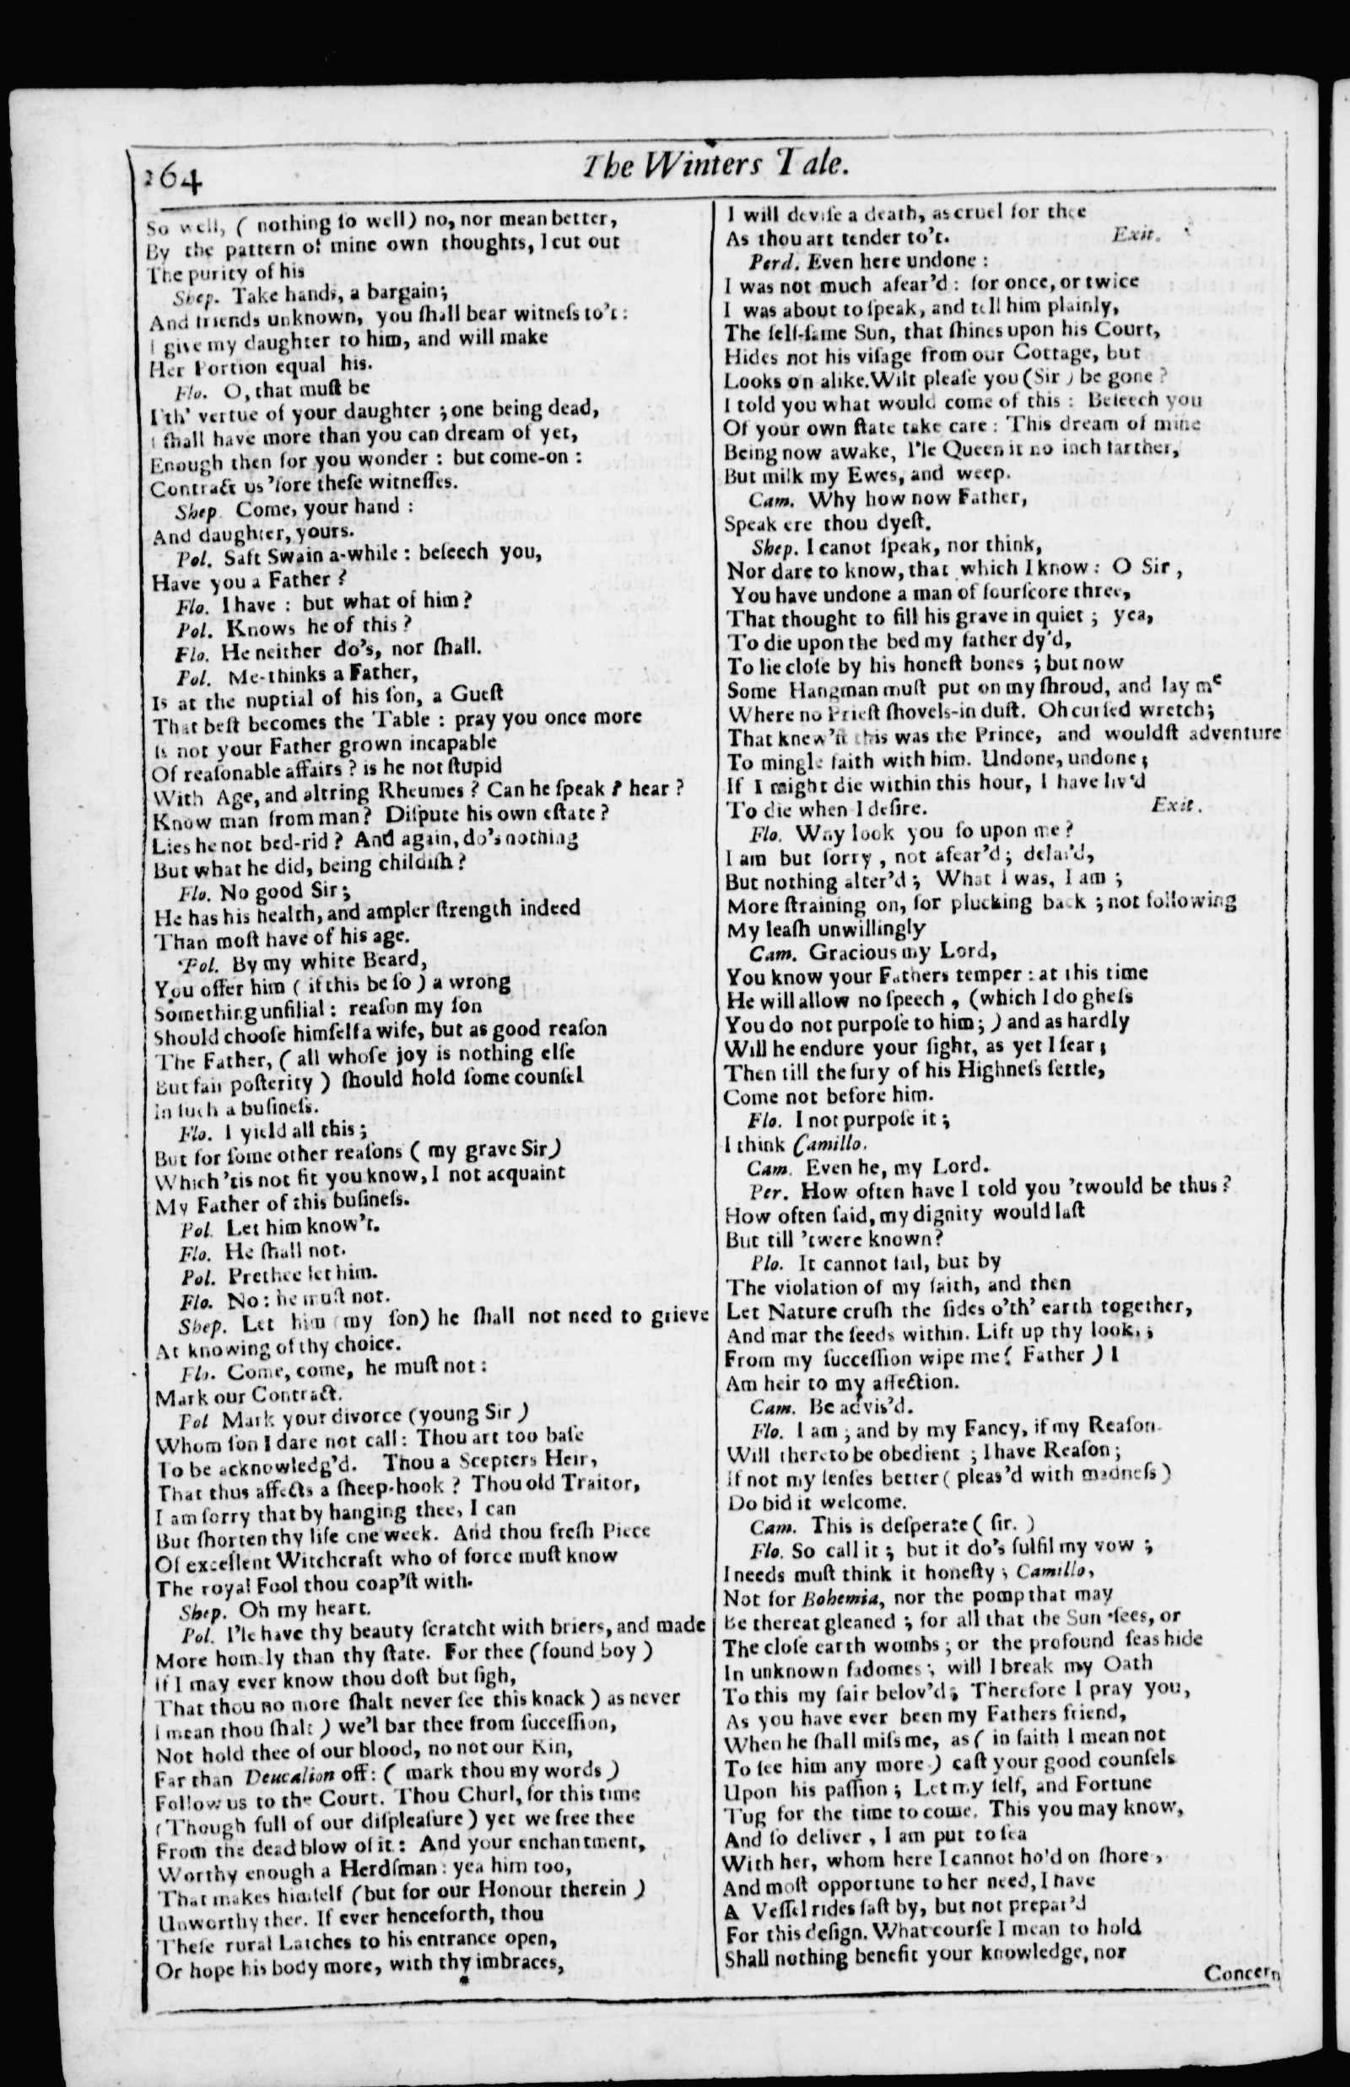 264
The Winters Tale.
So well, ( nothing ſo well) no, nor mean better,
By the pattern of mine own thoughts, I cut out
The purity of his
Shep. Take hands, a bargain;
And friends unknown, you ſhall bear witneſs to't :
I give my daughter to him, and will make
Her Portion equal his.
Flo. O, that muſt be
I'th' vertue of your daughter ; one being dead,
I ſhall have more than you can dream of yet,
Enough then for you wonder : but come-on :
Contract us 'fore theſe witneſſes.
Shep. Come, your hand :
And daughter, yours.
Pol. Saft Swain a-while : beſeech you,
Have you a Father ?
Flo. I have : but what of him?
Pol. Knows he of this ?
Flo. He neither do's, nor ſhall.
Pol. Me-thinks a Father,
Is at the nuptial of his ſon, a Gueſt
That beſt becomes the Table : pray you once more
Is not your Father grown incapable
Of reaſonable affairs ? is he not ſtupid
With Age, and altring Rheumes ? Can he ſpeak ? hear ?
Know man from man ? Diſpute his own eſtate ?
Lies he not bed-rid ? And again, do's nothing
But what he did, being childiſh ?
Flo. No good Sir ;
He has his health, and ampler ſtrength indeed
Than moſt have of his age.
Pol. By my white Beard,
You offer him ( if this be ſo ) a wrong
Something unfilial : reaſon my ſon
Should chooſe himſelf a wife, but as good reaſon
The Father, ( all whoſe joy is nothing elſe
But fair poſterity ) ſhould hold ſome counſel
In ſuch a buſineſs.
Flo. I yield all this ;
But for ſome other reaſons ( my grave Sir)
Which 'tis not fit you know, I not acquaint
My Father of this buſineſs.
Pol. Let him know't.
Flo. He ſhall not.
Pol. Prethee let him.
Flo. No : he muſt not.
Shep. Let him (my ſon) he ſhall not need to grieve
At knowing of thy choice.
Flo. Come, come, he muſt not :
Mark our Contract.
Pol Mark your divorce (young Sir )
Whom ſon I dare not call : Thou art too baſe
To be acknowledg'd. Thou a Scepters Heir,
That thus affects a ſheep-hook ? Thou old Traitor,
I am ſorry that by hanging thee, I can
But ſhorten thy life one week. And thou freſh Piece
Of excellent Witchcraft who of force muſt know
The royal Fool thou coap'ſt with.
Shep. Oh my heart.
Pol. I'le have thy beauty ſcratcht with briers, and made
More homely than thy ſtate. For thee (found boy )
If I may ever know thou doſt but ſigh,
That thou no more ſhalt never ſee this knack ) as never
I mean thou ſhalt ) we'l bar thee from ſucceſſion,
Not hold thee of our blood, no not our Kin,
Far than Deucalion off : ( mark thou my words )
Follow us to the Court. Thou Churl, for this time
(Though full of our diſpleaſure ) yet we free thee
From the dead blow of it : And your enchantment,
Worthy enough a Herdſman : yea him too,
That makes himſelf (but for our Honour therein )
Unworthy thee. If ever henceforth, thou
Theſe rural Latches to his entrance open,
Or hope his body more, with thy imbraces,
I will deviſe a death, as cruel for thee
As thou art tender to't. Exit.
Perd. Even here undone :
I was not much afear'd : for once, or twice
I was about to ſpeak, and tell him plainly,
The ſelf-ſame Sun, that ſhines upon his Court,
Hides not his viſage from our Cottage, but
Looks on alike. Wilt pleaſe you (Sir ) be gone ?
I told you what would come of this : Beſeech you
Of your own ſtate take care : This dream of mine
Being now awake, I'le Queen it no inch farther,
But milk my Ewes, and weep.
Cam. Why how now Father,
Speak ere thou dyeſt.
Shep. I canot ſpeak, nor think,
Nor dare to know, that which I know : O Sir ,
You have undone a man of fourſcore three,
That thought to fill his grave in quiet ; yea,
To die upon the bed my father dy'd,
To lie cloſe by his honeſt bones ; but now
Some Hangman muſt put on my ſhroud, and lay me
Where no Prieſt ſhovels-in duſt. Oh curſed wretch;
That knew'ſt this was the Prince, and wouldſt adventure
To mingle faith with him. Undone, undone ;
If I might die within this hour, I have liv'd
To die when I deſire. Exit.
Flo. Why look you ſo upon me ?
I am but ſorry , not afear'd ; delai'd,
But nothing alter'd ; What I was, I am ;
More ſtraining on, for plucking back ; not following
My leaſh unwillingly
Cam. Gracious my Lord,
You know your Fathers temper : at this time
He will allow no ſpeech , (which I do gheſs
You do not purpoſe to him ; ) and as hardly
Will he endure your ſight, as yet I fear ;
Then till the fury of his Highneſs ſettle,
Come not before him.
Flo. I not purpoſe it ;
I think Camillo.
Cam. Even he, my Lord.
Per. How often have I told you 'twould be thus ?
How often ſaid, my dignity would laſt
But till 'twere known?
Plo. It cannot fail, but by
The violation of my faith, and then
Let Nature cruſh the ſides o'th' earth together,
And mar the ſeeds within. Lift up thy looks ;
From my ſucceſſion wipe me ( Father ) I
Am heir to my affection.
Cam. Be advis'd.
Flo. I am ; and by my Fancy, if my Reaſon
Will thereto be obedient ; I have Reaſon ;
If not my ſenſes better ( pleas'd with madneſs )
Do bid it welcome.
Cam. This is deſperate ( ſir. )
Flo. So call it ; but it do's fulfil my vow ;
I needs muſt think it honeſty ; Camillo,
Not for Bohemia, nor the pomp that may
Be thereat gleaned ; for all that the Sun ſees, or
The cloſe earth wombs ; or the profound ſeas hide
In unknown fadomes ; will I break my Oath
To this my fair belov'd ; Therefore I pray you,
As you have ever been my Fathers friend,
When he ſhall miſs me, as ( in faith I mean not
To ſee him any more ) caſt your good counſels
Upon his paſſion ; Let my ſelf, and Fortune
Tug for the time to come. This you may know,
And ſo deliver , I am put to ſea
With her, whom here I cannot ho'd on ſhore ,
And moſt opportune to her need, I have
A Veſſel rides faſt by, but not prepar'd
For this deſign. What courſe I mean to hold
Shall nothing benefit your knowledge, nor
Concern